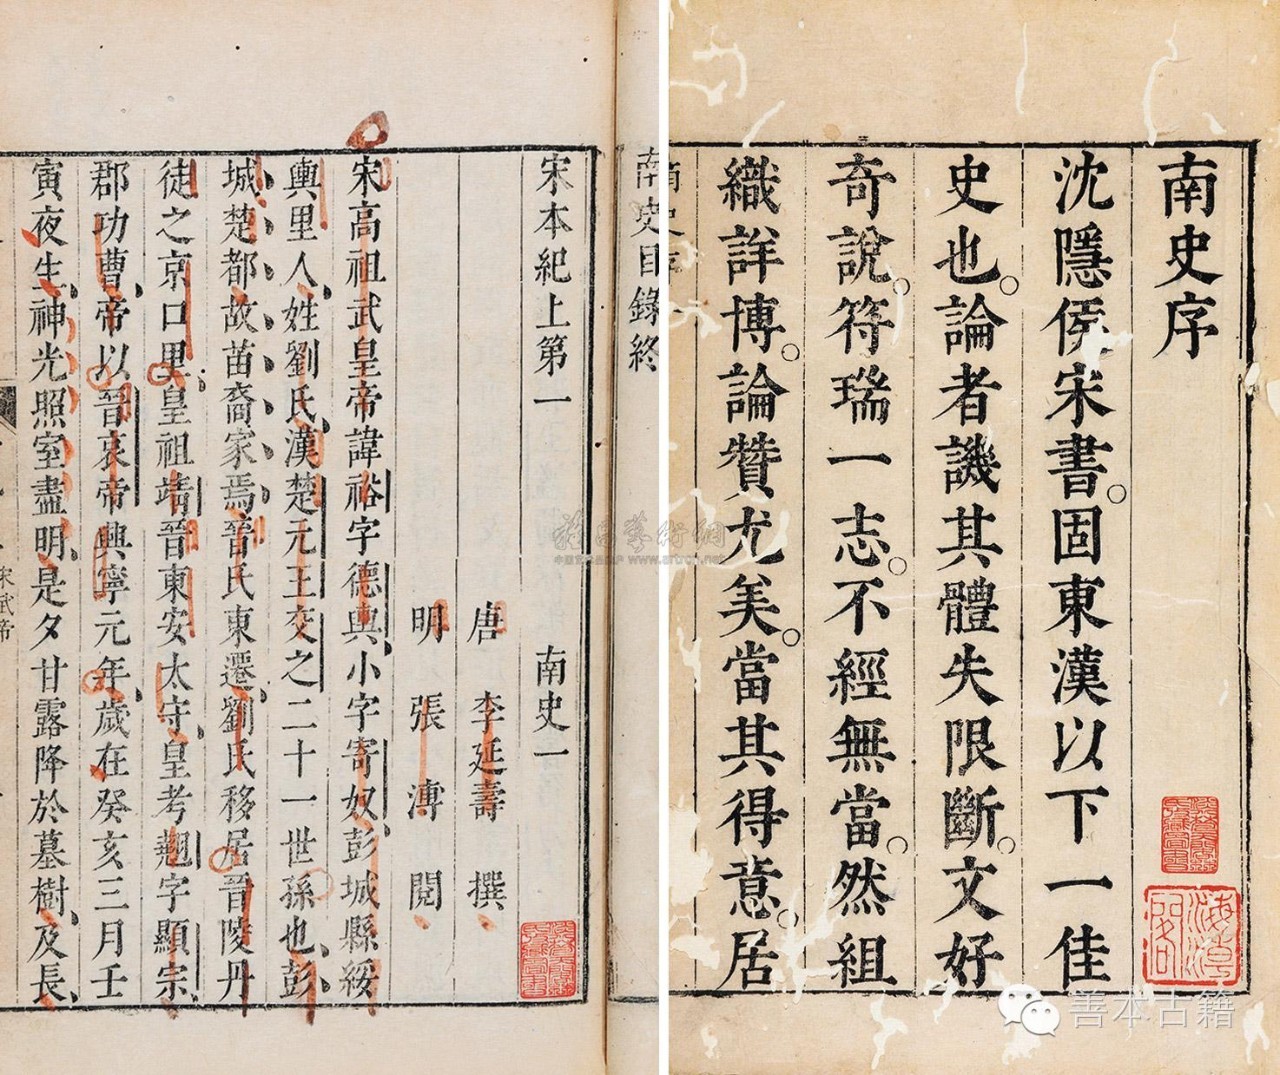 南史序
沈隱侯宋書。固東漢以下一佳
史也。論者譏其體失限斷。文好
奇說。符瑞一志。不經無當。然組
織詳博。論贊尤美。當其得意。居
南史目錄終
宋本紀上第一 南史一
唐 李延壽 撰
明 張溥 閱
宋高祖武皇帝諱裕字德輿小字寄奴彭城縣綏
輿里人姓劉氏漢楚元王交之二十一世孫也彭
城楚都故苗裔家焉晉氏東遷劉氏移居晉陵丹
徒之京口里皇祖靖晉東安太守皇考翹字顯宗
郡功曹帝以晉哀帝興寧元年歲在癸亥三月壬
寅夜生神光照室盡明是夕甘露降於墓樹及長
宋武帝
www.artron.net
善本古籍